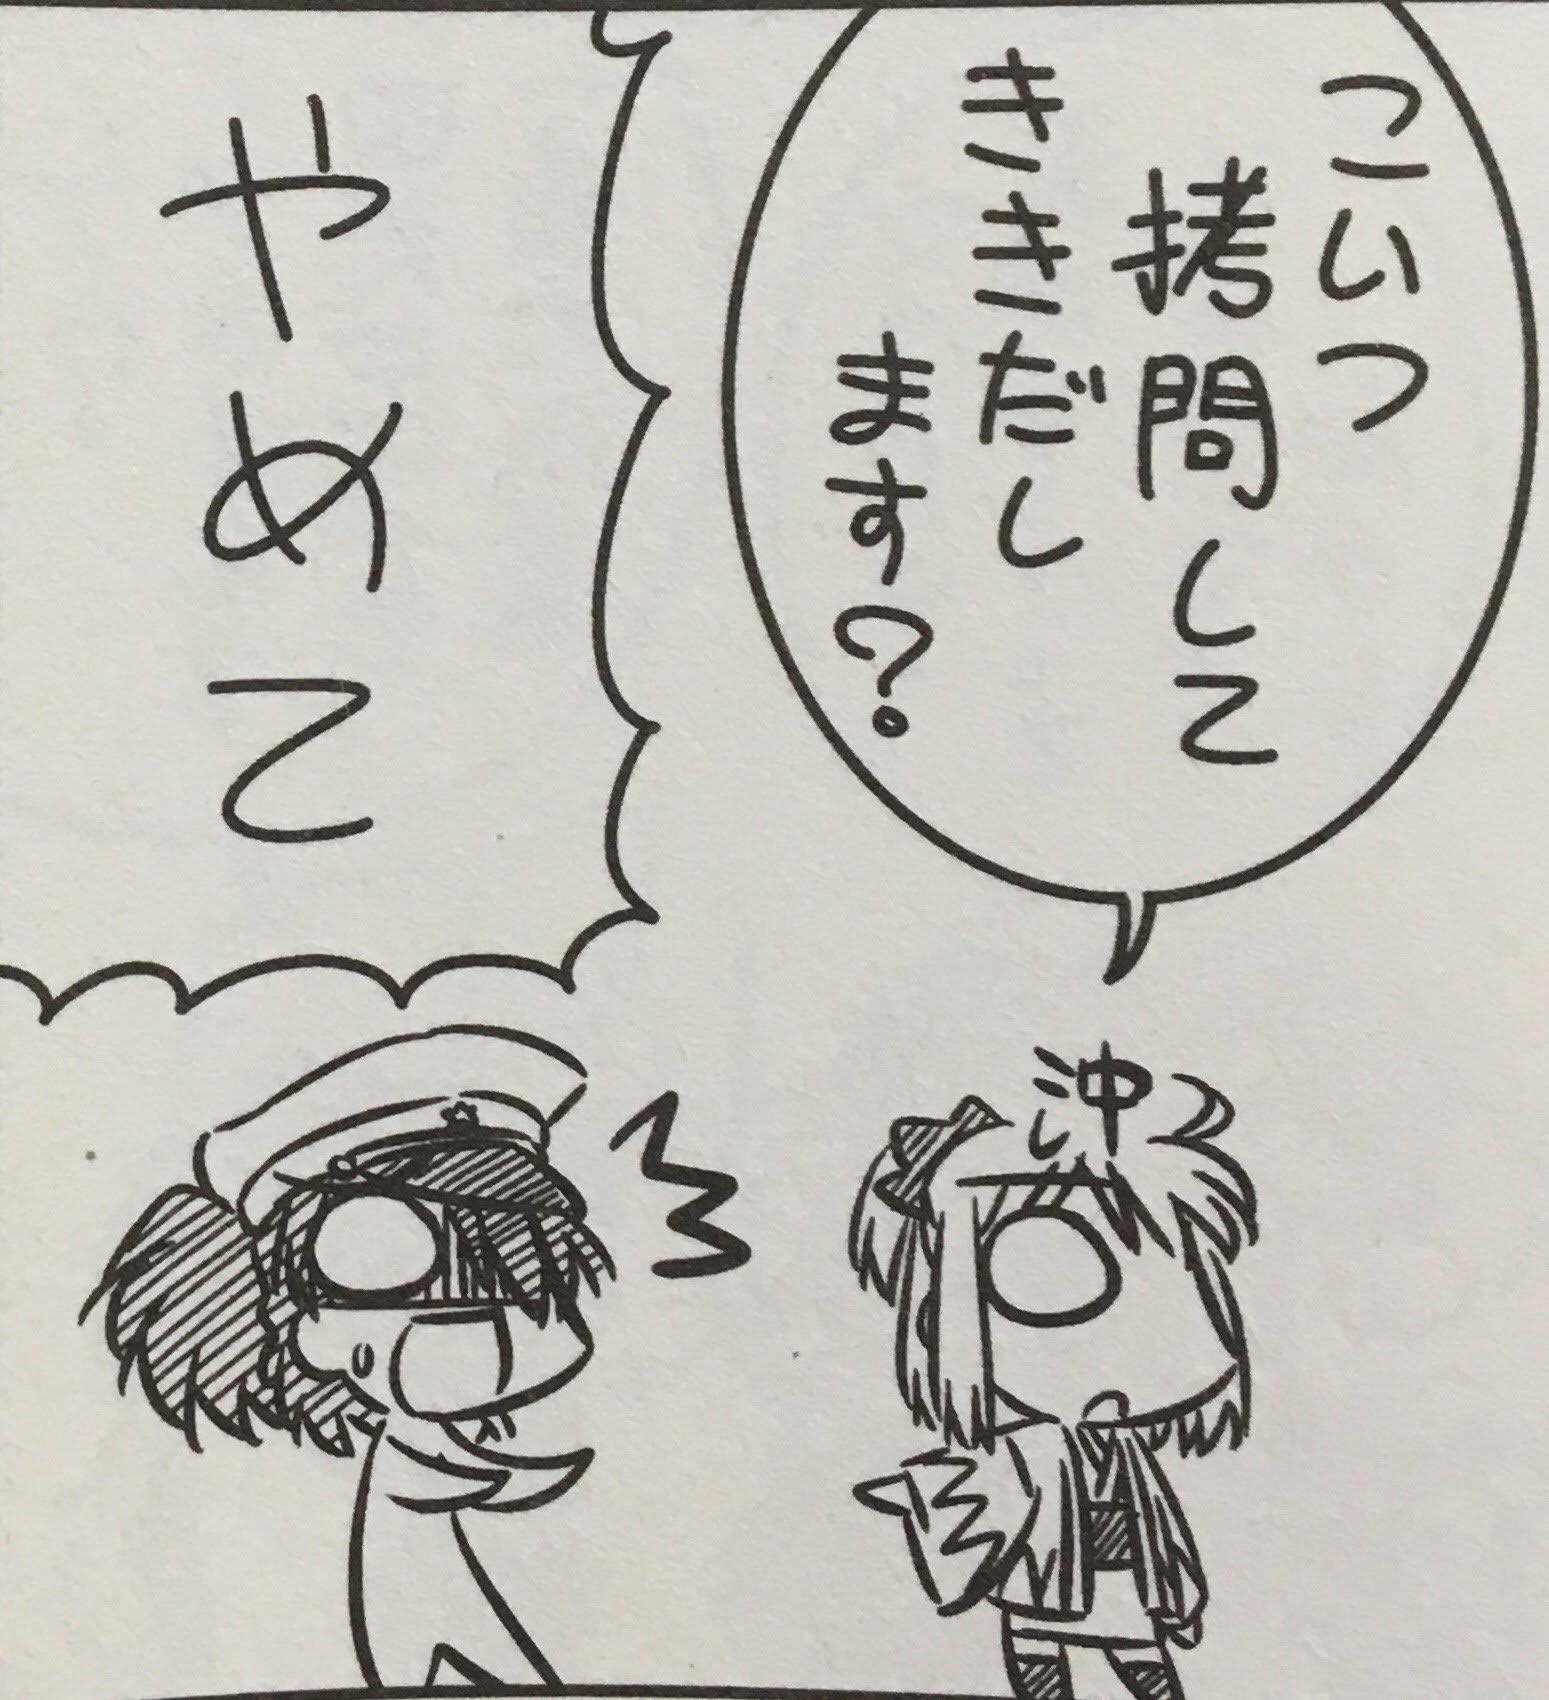 こいつ
拷問して
ききだし
ます?
沖
やめて